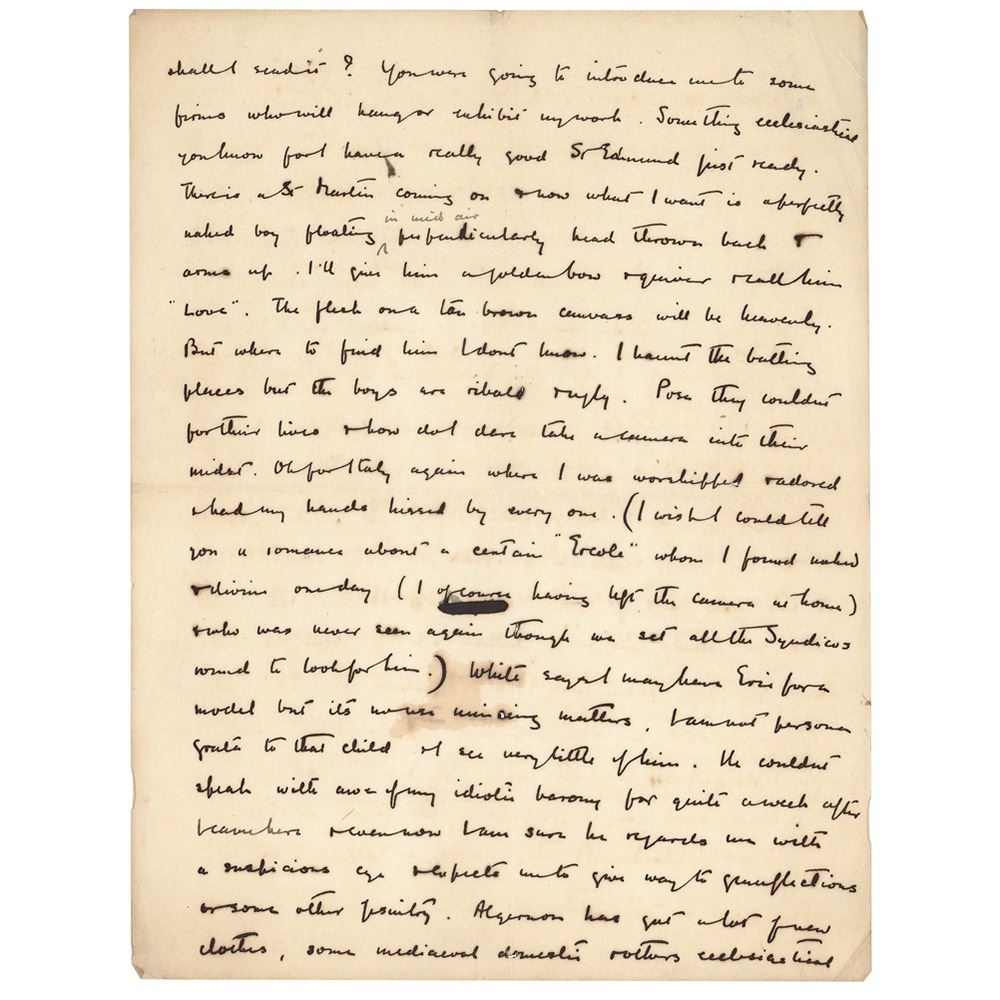 shall I send it? You were going to introduce me to some
firms who will hang or exhibit my work. Something ecclesiastical
you know for I have a really good St Edmund just ready.
There is a St Martin coming on & now what I want is a perfectly
naked boy floating in mid air perpendicularly head thrown back &
arms up. I'll give him a golden bow & quiver & call him
"Love". The flesh on a tan brown canvass will be heavenly.
But where to find him I dont know. I haunt the bathing
places but the boys are ribald & ugly. Pose they couldnt
for their lives & how do I dare take a camera into their
midst. Oh for Italy again where I was worshipped & adored
& had my hands kissed by every one. (I wish I could tell
you a romance about a certain "Ercole" whom I found naked
& divine one day (I of course having left the camera at home)
& who was never seen again though we set all the Syndicos
round to look for him.) White says I may have Eric for a
model but its no use mincing matters, I am not persona
grata to that child & I see very little of him. He couldnt
speak with awe of my idiotic barony for quite a week after
I came here & even now I am sure he regards me with
a suspicious eye & expects me to give way to genuflections
or some other Jesuitry. Algernon has got a lot of new
clothes, some mediaeval domestic & others ecclesiastical